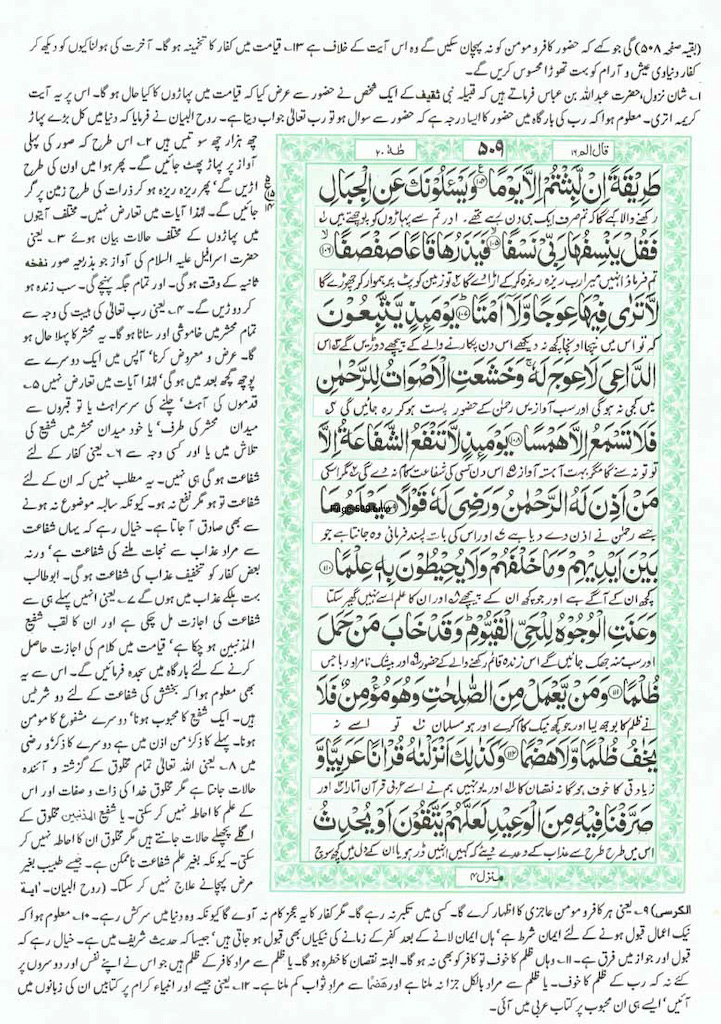 (بقیہ صفحہ ۵۰۸) گی جو کہے کہ حضور کافر و مومن کو نہ پہچان سکیں گے وہ اس آیت کے خلاف ہے ۱۳۔ قیامت میں کفار کا تخمینہ ہو گا۔ آخرت کی ہولناکیوں کو دیکھ کر
کفار دنیاوی عیش و آرام کو بہت تھوڑا محسوس کریں گے۔
۱۔ شان نزول، حضرت عبداللہ بن عباس فرماتے ہیں کہ قبیلہ بنی ثقیف کے ایک شخص نے حضور سے عرض کیا کہ قیامت میں پہاڑوں کا کیا حال ہو گا۔ اس پر یہ آیت
کریمہ اتری۔ معلوم ہوا کہ رب کی بارگاہ میں حضور کا ایسا درجہ ہے کہ حضور سے سوال ہو تو رب تعالیٰ جواب دیتا ہے۔ روح البیان نے فرمایا کہ دنیا میں کل بڑے پہاڑ
چھ ہزار چھ سو تتیں ہیں ۲۔ اس طرح کہ صور کی پہلی
آواز پر پہاڑ پھٹ جائیں گے۔ پھر ہوا میں اون کی طرح
اڑیں گے' پھر ریزہ ریزہ ہو کر ذرات کی طرح زمین پر گر
جائیں گے۔ لہٰذا آیات میں تعارض نہیں۔ مختلف آیتوں
میں پہاڑوں کے مختلف حالات بیان ہوئے ۳۔ یعنی
حضرت اسرافیل علیہ السلام کی آواز جو بذریعہ صور نفخہ
ثانیہ کے وقت ہو گی۔ اور تمام جگہ پہنچے گی۔ سب زندہ ہو
کر دوڑیں گے۔ ۴۔ یعنی رب تعالیٰ کی ہیبت کی وجہ سے
تمام محشر میں خاموشی اور سناٹا ہو گا۔ یہ محشر کا پہلا حال ہو
گا۔ عرض و معروض کرنا' آپس میں ایک دوسرے سے
پوچھ گچھ بعد میں ہو گی' لہٰذا آیات میں تعارض نہیں ۵۔
قدموں کی آہٹ' چلنے کی سرسراہٹ یا تو قبروں سے
میدان محشر کی طرف' یا خود میدان محشر میں شفیع کی
تلاش میں یا اور کسی وجہ سے ۶۔ یعنی کفار کے لئے
شفاعت ہو گی ہی نہیں۔ یہ مطلب نہیں کہ ان کے لئے
شفاعت تو ہو مگر نفع نہ ہو۔ کیونکہ سالبہ موضوع نہ ہونے
سے بھی صادق آ جاتا ہے۔ خیال رہے کہ یہاں شفاعت
سے مراد عذاب سے نجات ملنے کی شفاعت ہے' ورنہ
بعض کفار کو تخفیف عذاب کی شفاعت ہو گی۔ ابوطالب
بہت ہلکے عذاب میں ہوں گے ۷۔ یعنی انہیں پہلے ہی سے
شفاعت کی اجازت مل چکی ہے اور ان کا لقب شفیع
المذنبین ہو چکا ہے' قیامت میں کلام کی اجازت حاصل
کرنے کے لئے بارگاہ میں سجدہ فرمائیں گے۔ اس سے یہ
بھی معلوم ہوا کہ بخشش کی شفاعت کے لئے دو شرطیں
ہیں۔ ایک شفیع کا محبوب ہونا' دوسرے مشفوع کا مومن
ہونا۔ پہلے کا ذکر من اذن میں ہے دوسرے کا ذکر و رضی
میں ۸۔ یعنی اللہ تعالیٰ تمام مخلوق کے گزشتہ و آئندہ
حالات جانتا ہے مگر مخلوق خدا کی ذات و صفات اور اس
کے علم کا احاطہ نہیں کر سکتی۔ یا شفیع المذنبین مخلوق کے
اگلے پچھلے حالات جانتے ہیں مگر مخلوق ان کا احاطہ نہیں کر
سکتی۔ کیونکہ بغیر علم شفاعت ناممکن ہے۔ جیسے طبیب بغیر
مرض پہچانے علاج نہیں کر سکتا۔ (روح البیان۔ آیۃ
قال الم ۱۶
۵۰۹
طٰہٰ ۲۰
طَرِيْقَةً اِنْ لَّبِثْتُمْ اِلَّا يَوْمًا ﴿۱۰۴﴾ وَيَسْـَٔلُوْنَكَ عَنِ الْجِبَالِ
رکھنے والا کہے گا کہ تم صرف ایک ہی دن رہے تھے۔ اور تم سے پہاڑوں کو پوچھتے ہیں
فَقُلْ يَنْسِفُهَا رَبِّيْ نَسْفًا ﴿۱۰۵﴾ فَيَذَرُهَا قَاعًا صَفْصَفًا ﴿۱۰۶﴾
تم فرماؤ انہیں میرا رب ریزہ ریزہ کر کے اڑا دے گا تو زمین کو پٹ پر ہموار کر چھوڑے گا
لَّا تَرٰى فِيْهَا عِوَجًا وَّلَآ اَمْتًا ﴿۱۰۷﴾ يَوْمَئِذٍ يَّتَّبِعُوْنَ
کہ تو اس میں نیچا اونچا کچھ نہ دیکھے اس دن پکارنے والے کے پیچھے دوڑیں گے اس
الدَّاعِيَ لَا عِوَجَ لَهٗ وَخَشَعَتِ الْاَصْوَاتُ لِلرَّحْمٰنِ
میں کجی نہ ہو گی اور سب آوازیں رحمٰن کے حضور پست ہو کر رہ جائیں گی
فَلَا تَسْمَعُ اِلَّا هَمْسًا ﴿۱۰۸﴾ يَوْمَئِذٍ لَّا تَنْفَعُ الشَّفَاعَةُ اِلَّا
تو تو نہ سنے گا مگر بہت آہستہ آواز اس دن کسی کی شفاعت کام نہ دے گی مگر اس کی
مَنْ اَذِنَ لَهُ الرَّحْمٰنُ وَرَضِيَ لَهٗ قَوْلًا ﴿۱۰۹﴾ يَعْلَمُ مَا
جسے رحمٰن نے اذن دے دیا ہے اور اس کی بات پسند فرمائی وہ جانتا ہے جو
بَيْنَ اَيْدِيْهِمْ وَمَا خَلْفَهُمْ وَلَا يُحِيْطُوْنَ بِهٖ عِلْمًا ﴿۱۱۰﴾
کچھ ان کے آگے ہے اور جو کچھ ان کے پیچھے اور ان کا علم اسے نہیں گھیر سکتا
وَعَنَتِ الْوُجُوْهُ لِلْحَيِّ الْقَيُّوْمِ وَقَدْ خَابَ مَنْ حَمَلَ
اور سب منہ جھک جائیں گے اس زندہ قائم رکھنے والے کے حضور اور بیشک نامراد رہا جس
ظُلْمًا ﴿۱۱۱﴾ وَمَنْ يَّعْمَلْ مِنَ الصّٰلِحٰتِ وَهُوَ مُؤْمِنٌ فَلَا
نے ظلم کا بوجھ لیا اور جو کچھ نیک کام کرے اور ہو مسلمان تو اسے نہ
يَخٰفُ ظُلْمًا وَّلَا هَضْمًا ﴿۱۱۲﴾ وَكَذٰلِكَ اَنْزَلْنٰهُ قُرْاٰنًا عَرَبِيًّا وَّ
زیادتی کا خوف ہو گا نہ نقصان کا اور یونہی ہم نے اسے عربی قرآن اتارا اور
صَرَّفْنَا فِيْهِ مِنَ الْوَعِيْدِ لَعَلَّهُمْ يَتَّقُوْنَ اَوْ يُحْدِثُ
اس میں طرح طرح سے عذاب کے وعدے دیئے کہ کہیں انہیں ڈر ہو یا ان کے دل میں کچھ سوچ
منزل ۴
الکرسی) ۹۔ یعنی ہر کافر و مومن عاجزی کا اظہار کرے گا۔ کسی میں تکبر نہ رہے گا۔ مگر کفار کا یہ عجز کام نہ آوے گا کیونکہ وہ دنیا میں سرکش رہے۔ ۱۰۔ معلوم ہوا کہ
نیک اعمال قبول ہونے کے لئے ایمان شرط ہے' ہاں ایمان لانے کے بعد کفر کے زمانے کی نیکیاں بھی قبول ہو جاتی ہیں' جیسا کہ حدیث شریف میں ہے۔ خیال رہے کہ
قبول اور جواز میں فرق ہے۔ ۱۱۔ وہاں ظلم کا خوف تو کافر کو بھی نہ ہو گا۔ البتہ نقصان کا خطرہ ہو گا۔ یا ظلم سے مراد کافر کے ظلم ہیں جو اس نے اپنے نفس اور دوسروں پر
کئے نہ کہ رب کے ظلم کا خوف۔ یا ظلم سے مراد بالکل جزا نہ ملنا ہے اور ھضمًا سے مراد ثواب کم ملنا ہے۔ ۱۲۔ یعنی جیسے اور انبیاء کرام پر کتابیں ان کی زبانوں میں
آئیں' ایسے ہی ان محبوب پر کتاب عربی میں آئی۔